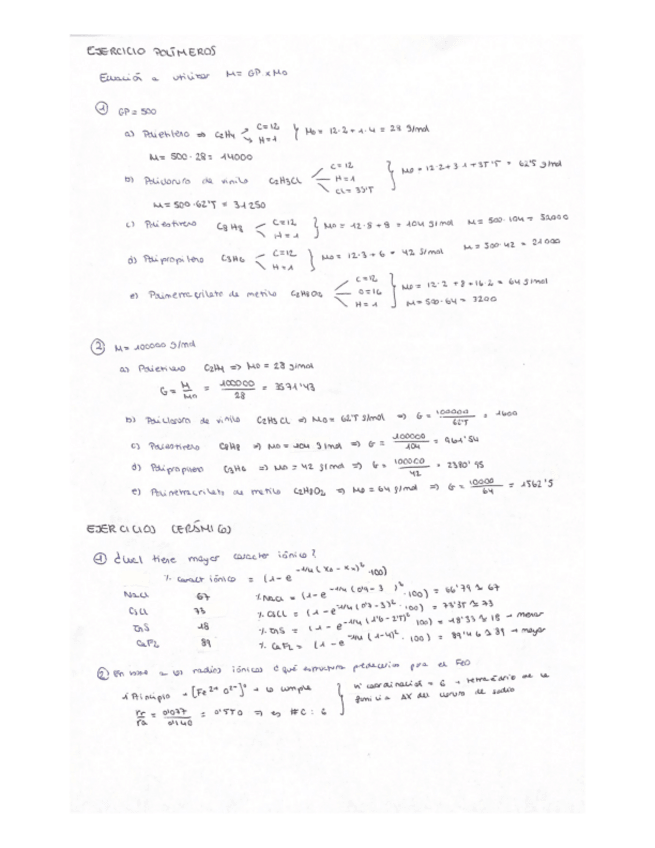 EJERCICIO POLÍMEROS
Ecuación a utilizar M = GP x Mo
① GP = 500
a) Polietileno => C2H4 C=12 H=1 } Mo = 12·2 + 1·4 = 28 g/mol
M = 500·28 = 14000
b) Policloruro de vinilo C2H3Cl C=12 H=1 Cl=35'5 } Mo = 12·2+3·1+35'5 = 62'5 g/mol
M = 500·62'5 = 31250
c) Poliestireno C8H8 C=12 H=1 } Mo = 12·8 + 8 = 104 g/mol M = 500·104 = 52000
d) Polipropileno C3H6 C=12 H=1 } Mo = 12·3 + 6 = 42 g/mol M = 500·42 = 21000
e) de metilo C=12 O=16 H=1 } Mo = 12·2 + 8 + 16·2 = 64 g/mol
M = 500·64 = 3200
② M = 100000 g/mol
a) Polietileno C2H4 => Mo = 28 g/mol
G = M/Mo = 100000/28 = 3571'43
b) Policloruro de vinilo C2H3Cl => Mo = 62'5 g/mol => G = 100000/62'5 = 1600
c) Poliestireno C8H8 => Mo = 104 g/mol => G = 100000/104 = 961'54
d) Polipropileno C3H6 => Mo = 42 g/mol => G = 100000/42 = 2380'95
e) Polimetracrilato de metilo C2H8O2 => Mo = 64 g/mol => G = 10000/64 = 1562'5
EJERCICIOS CERÁMICOS
① ¿Cual tiene mayor caracter iónico?
% caract iónico = (1 - e^-1/4 (xA - xB)² · 100)
NaCl 67 % NaCl = (1 - e^-1/4 (0'9 - 3)² · 100) = 66'79 ≈ 67
CsCl 73 % CsCl = (1 - e^-1/4 (0'7-3)² · 100) = 73'35 ≈ 73
ZnS 18 % ZnS = (1 - e^-1/4 (1'6-2'5)² · 100) = 18'33 ≈ 18 → menor
CaF2 89 % CaF2 = (1 - e^-1/4 (1-4)² · 100) = 89'46 ≈ 89 → mayor
② En base a los radios iónicos ¿qué estructura para el FeO
1 Principio → [Fe2+ O2-] → lo cumple
rc/ra = 0'077/0'140 = 0'550 => es #C: 6
nº coordinación = 6 → de la
familia AX del cloruro de sodio